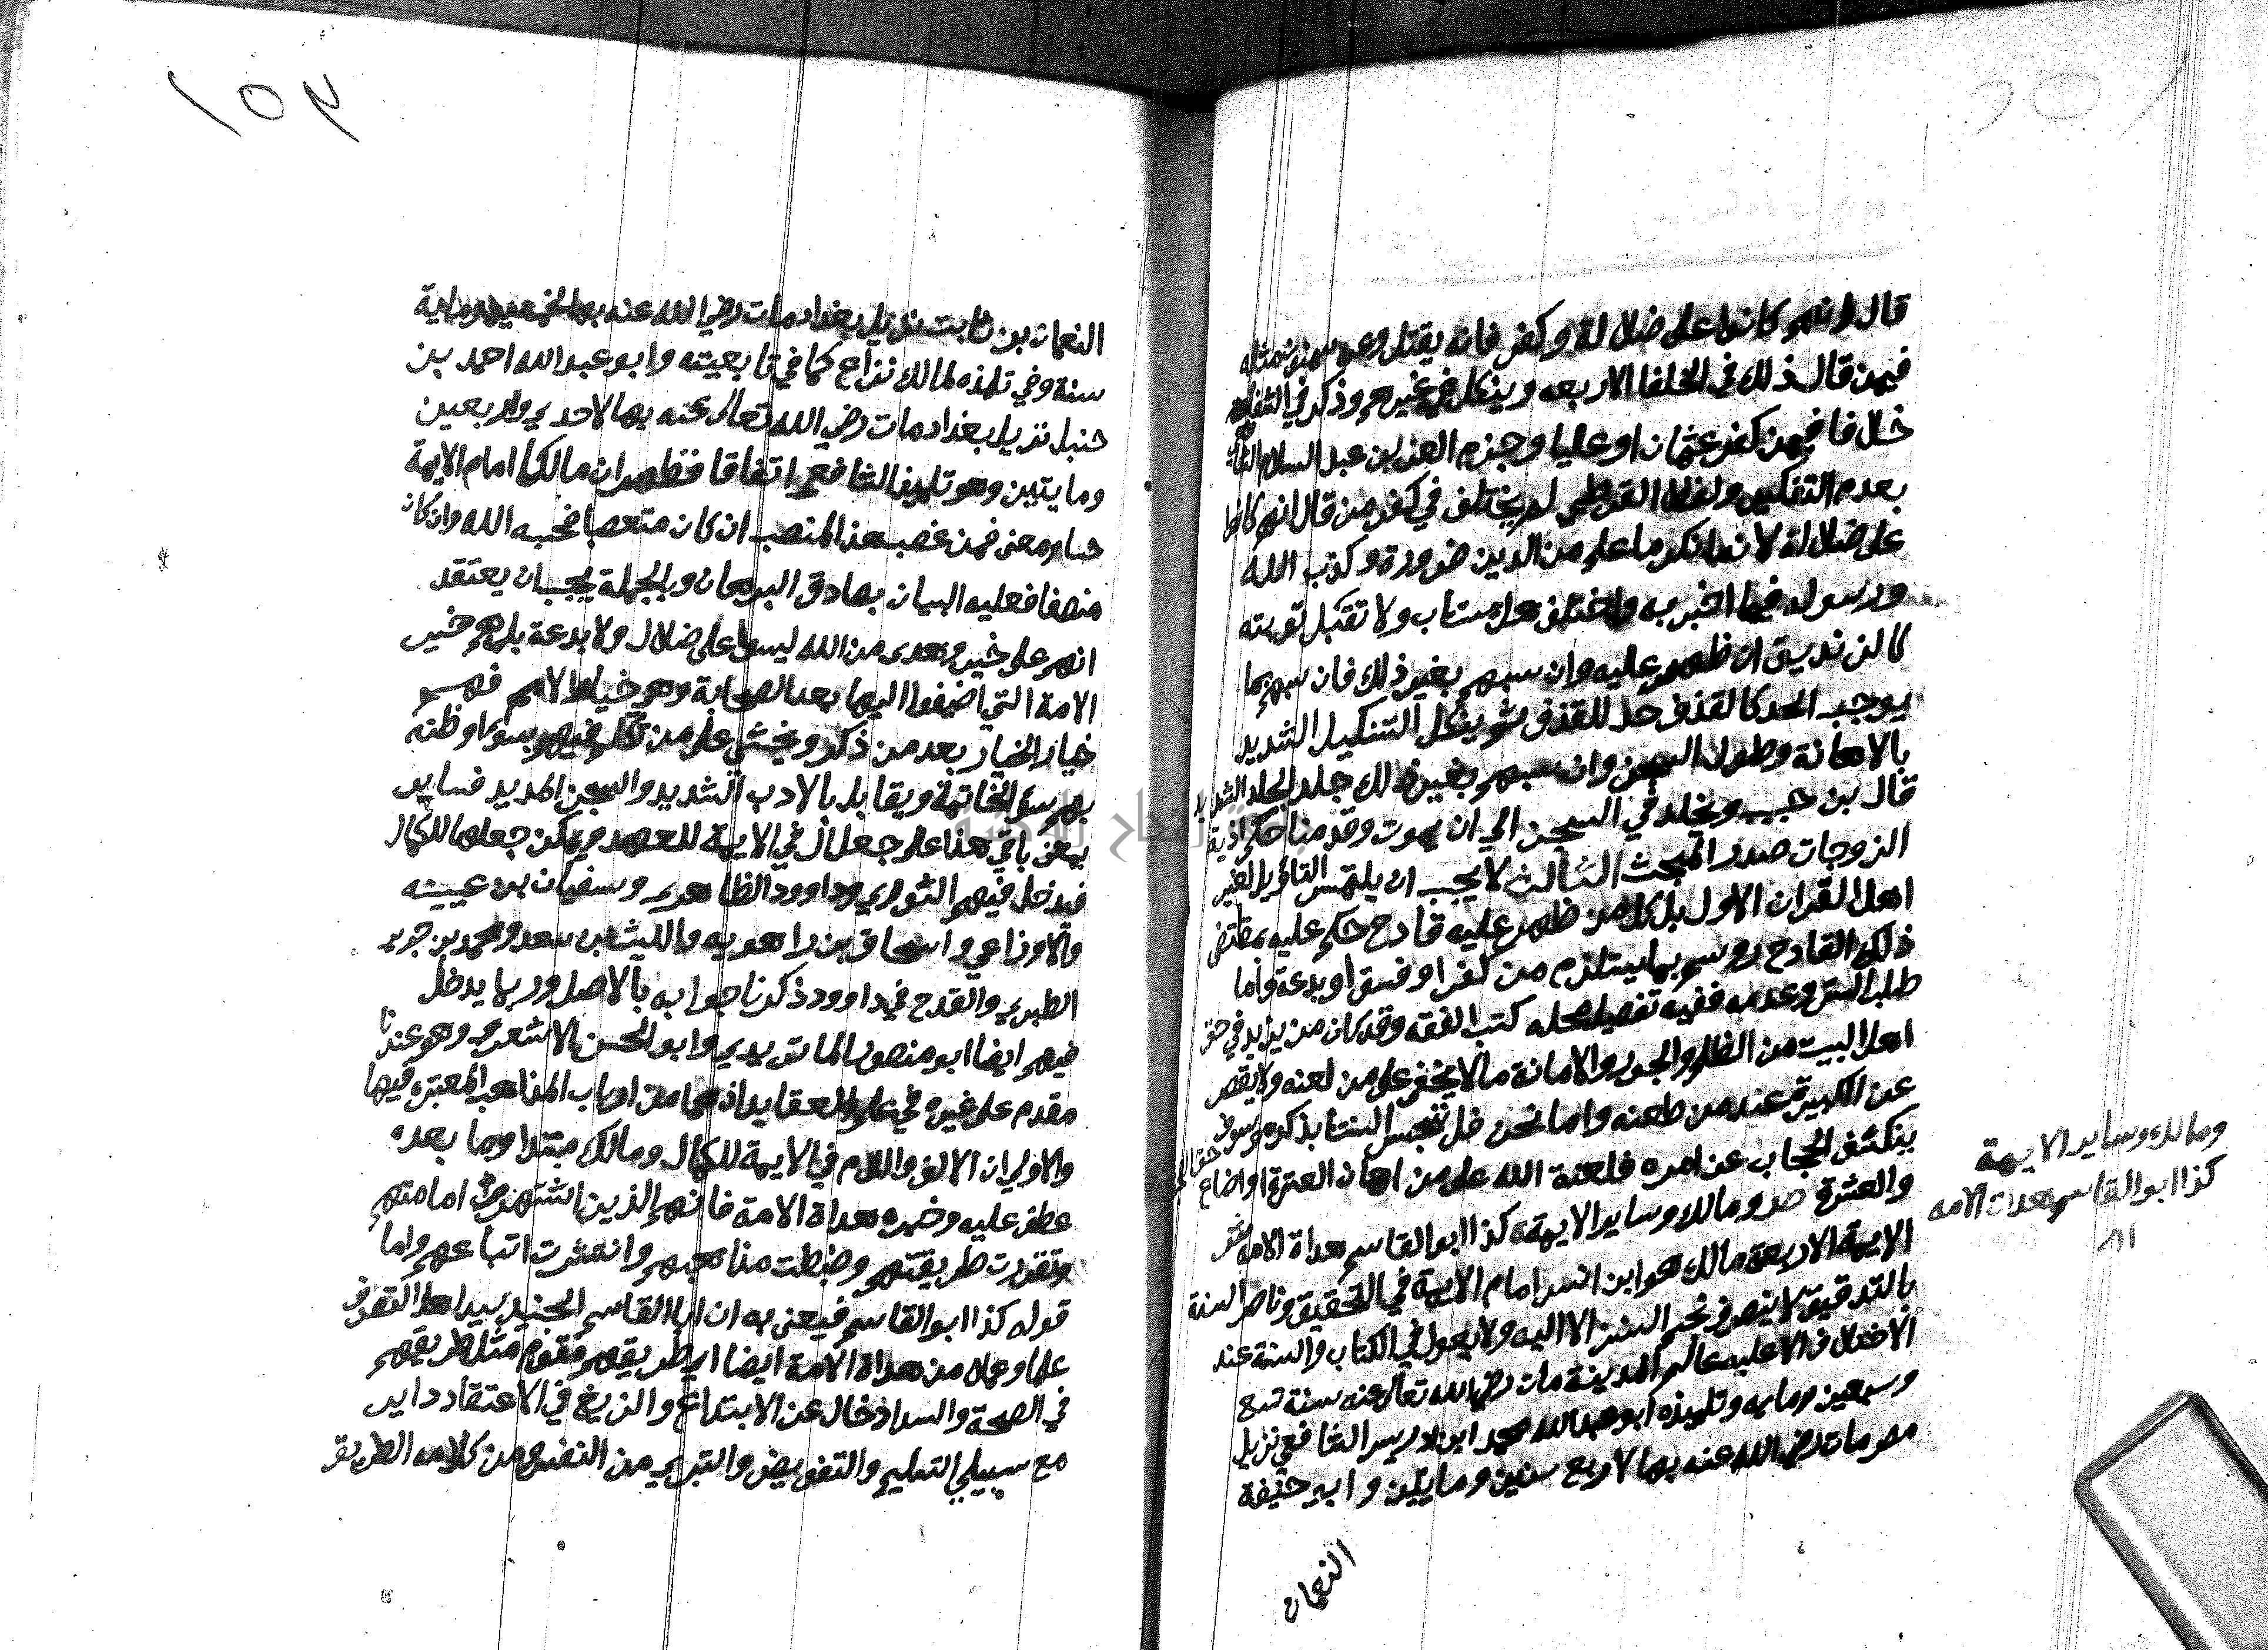 قال انهم كانوا على ضلالة وكفر فانه يقتل وعن سحنون مثله
فيمن قال ذلك في الخلفا الاربعه وينكل في غيرهم وذكر في الشفا
خلافا فيمن كفر عثمان او عليا وجزم العز بن عبد السلام
بعدم التكفير ولفظ القرطبي لم يختلف في كفر من قال انهم كانوا
على ضلالة لانه انكر ما علم من الدين ضرورة وكذب الله
ورسوله فيما اخبر به واختلف هل يستتاب ولا تقبل توبته
كالزنديق ان ظهر عليه وان سبهم بغير ذلك فان سبهم بما
يوجب الحد كالقذف حد للقذف ثم ينكل التنكيل الشديد
بالاهانة وطول السجن وان سبهم بغير ذلك جلد الجلد الشديد
قال بن حبيب ويخلد في السجن الي ان يموت وقدمنا حكم اذية
الزوجات صدر المبحث الثالث لا يجب ان يلتمس التاويل لغير
اهل القران الاول بل كل من ظهر عليه قادح حكم عليه بمقتضى
ذلك القادح وسم بما يستلزم من كفر او فسق او بدعة واما
طلب الستر وعدمه ففيه تفصيل محله كتب الفقه وقد كان من يزيد في حق
اهل البيت من الظلم والجور والاهانة ما لا يخفى على من لعنه ولا يقصر
عن الكبيرة عند من طعنه واما نحن فلا ننجس السنتنا بذكره وسوف
ينكشف الحجاب عن امره فلعنة الله على من اهان العترة او اضاع حق
والعشرة صد ومالك وساير الايمة كذا ابو القاسم هداة الامه
الايمة الاربعة مالك هو ابن انس امام الايمة في التحقيق وناصر السنة
بالتدقيق لا ينصرف نجم السنن الا اليه ولا يعول في الكتاب والسنة عند
الاختلاف الا عليه عالم المدينة مات رضي الله تعالى عنه سنة تسع
وسبعين ومايه وتلميذه ابو عبد الله محمد ابن ادريس الشافعي نزيل
مصر مات رضي الله عنه بها لاربع سنين ومايتين وابي حنيفة
النعمان
ومالك وساير الايمة
كذا ابو القاسم هداة الامه
١٥٣
النعمان بن ثابت نزيل بغداد مات رضي الله عنه بها لخمسين ومايه
سنة وفي تلمذه لمالك نزاع كما في تابعيته وابو عبد الله احمد بن
حنبل نزيل بغداد مات رضي الله تعالى عنه بها لاحدي واربعين
ومايتين وهو تلميذ الشافعي اتفاقا فظهر ان مالكا امام الايمة
حسا ومعنى فمن غصب هذا المنصب ان كان متعصبا فحسبه الله وان كان
منصفا فعليه البيان بصادق البرهان وبالجملة يجب ان يعتقد
انهم على خير وهدى من الله ليسوا على ضلال ولا بدعة بل هم خير
الامة التي اضيفوا اليها بعد الصحابة وهو خيار الامم فهم
خيار الخيار بعد من ذكر ويخشى على من تكلم فيهم بسوء او ظنه
بهم سوء الخاتمة ويقابل بالادب الشديد والسجن المديد فساير
بمعنى باقي هذا على جعل ال في الايمة للعهد ويمكن جعلها للكمال
فيدخل فيهم الثوري وداوود الظاهري وسفيان بن عيينه
والاوزاعي واسحاق بن راهويه والليث بن سعد ومحمد بن جرير
الطبري والقدح في داوود ذكرنا جوابه بالاصل وربما يدخل
فيهم ايضا ابو منصور الماتريدي وابو الحسن الاشعري وهو عندنا
مقدم على غيره في علم العقايد اذ هما من ارباب المذاهب المعتبره فيها
والاولي ان الالف واللام في الايمة للكمال ومالك مبتدا وما بعده
عطف عليه وخبره هداة الامة فانهم الذين اشتهرت امامتهم
وتقررت طريقتهم وضبطت مذاهبهم وانتشرت اتباعهم واما
قوله كذا ابو القاسم فيعني به ان ابا القاسم الجنيد سيد اهل التصوف
علما وعملا من هداة الامة ايضا اي طريقهم مقوم مثل طريقهم
في الصحة والسداد خال عن الابتداع والزيغ في الاعتقاد داير
مع سبيلي التسليم والتفويض والتبري من النفس ومن كلامه الطريق